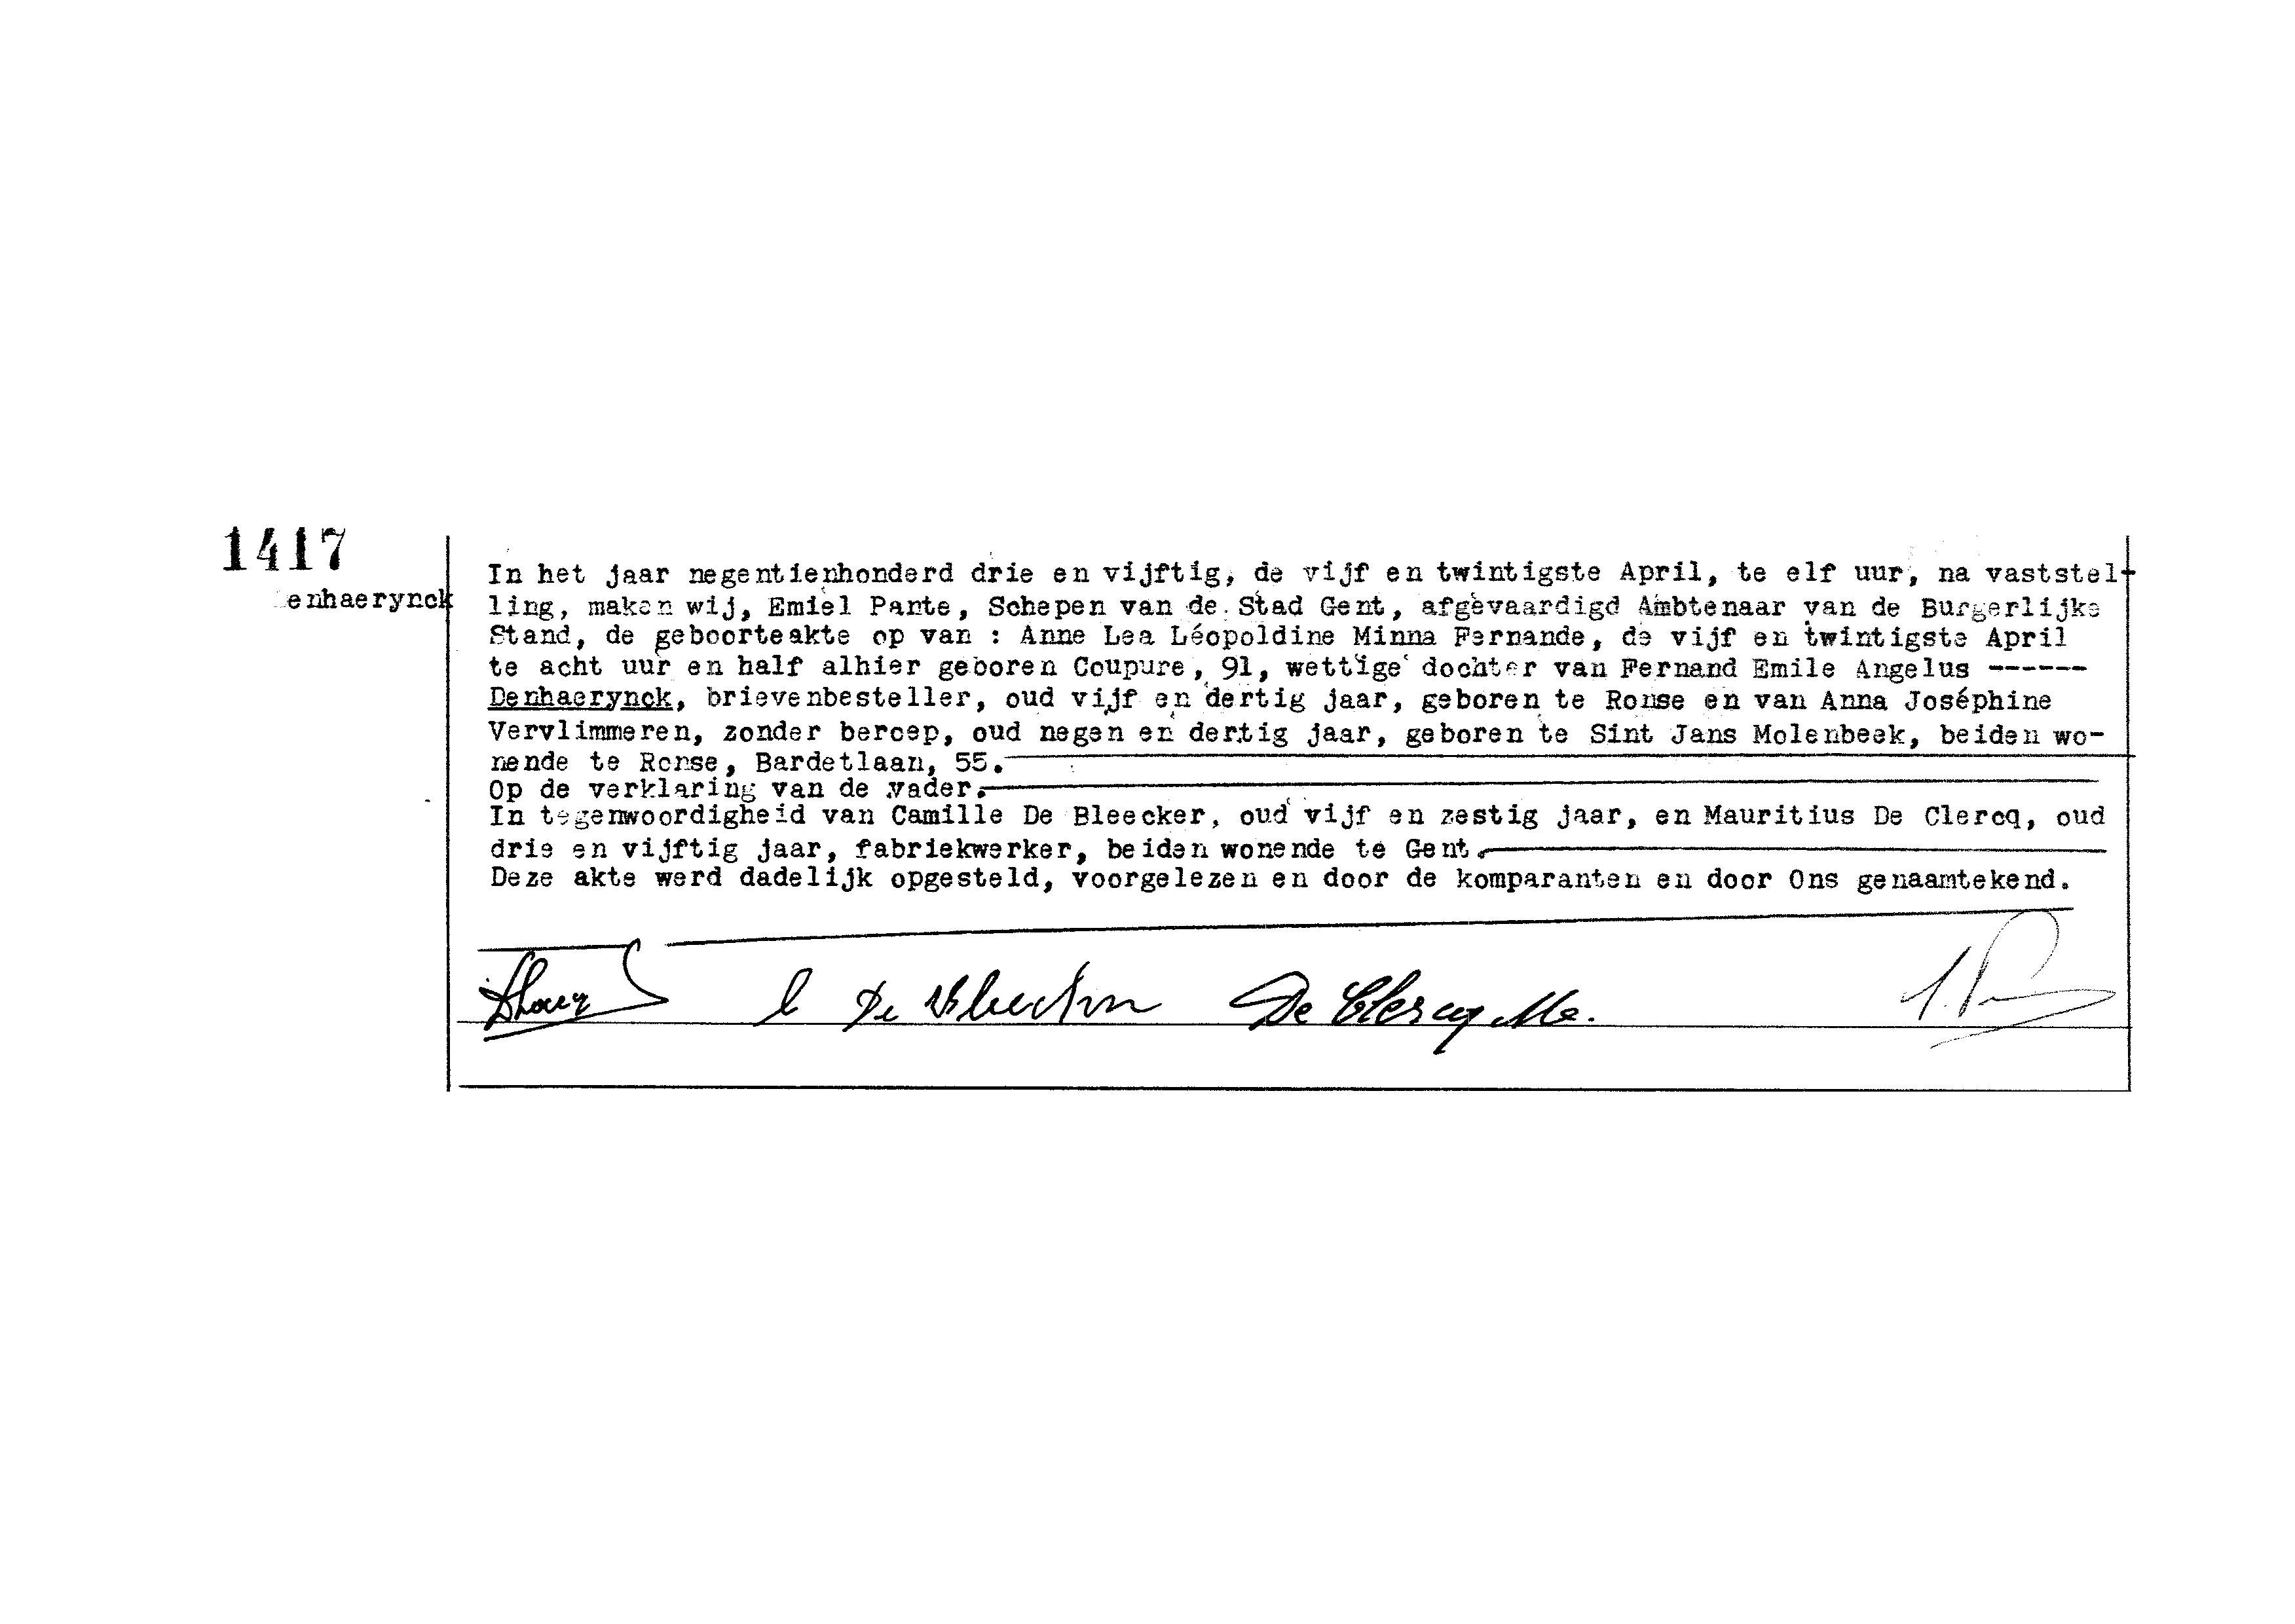 1417
enhaerynck
In het jaar negentienhonderd drie en vijftig, de vijf en twintigste April, te elf uur, na vaststel-
ling, maken wij, Emiel Pante, Schepen van de Stad Gent, afgevaardigd Ambtenaar van de Burgerlijke
Stand, de geboorteakte op van : Anne Lea Léopoldine Minna Fernande, de vijf en twintigste April
te acht uur en half alhier geboren Coupure, 91, wettige dochter van Fernand Emile Angelus ------
Denhaerynck, brievenbesteller, oud vijf en dertig jaar, geboren te Ronse en van Anna Joséphine
Vervlimmeren, zonder beroep, oud negen en dertig jaar, geboren te Sint Jans Molenbeek, beiden wo-
nende te Ronse, Bardetlaan, 55.
Op de verklaring van de vader.
In tegenwoordigheid van Camille De Bleecker, oud vijf en zestig jaar, en Mauritius De Clercq, oud
drie en vijftig jaar, fabriekwerker, beiden wonende te Gent.
Deze akte werd dadelijk opgesteld, voorgelezen en door de komparanten en door Ons genaamtekend.
De Clercq Ma.